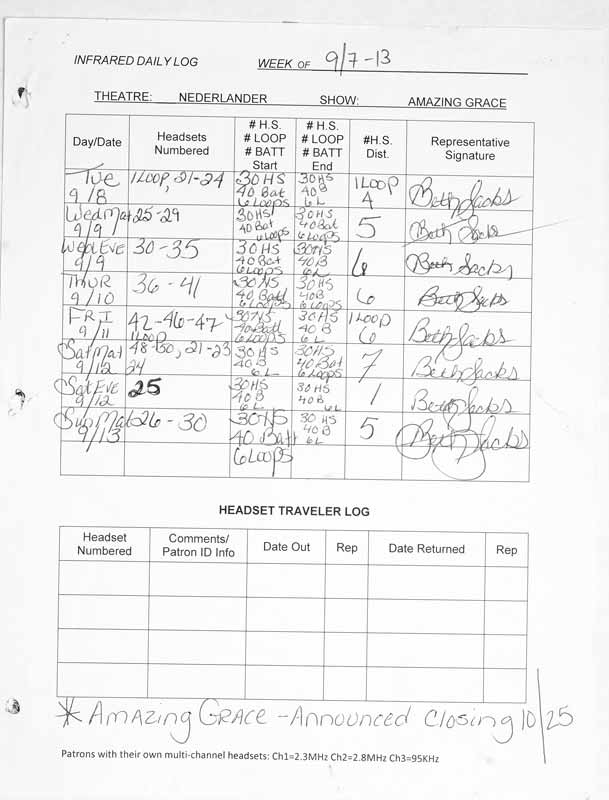 INFRARED DAILY LOG WEEK OF 9/7-13
THEATRE: NEDERLANDER SHOW: AMAZING GRACE
Day/Date Headsets Numbered # H.S. # LOOP # BATT Start # H.S. # LOOP # BATT End #H.S. Dist. Representative Signature
Tue 9/8 1 LOOP, 21-24 30 HS 40 Bat 6 Loops 30 HS 40 B 6 L 1 LOOP 4 Beth Jacks
Wed Mat 9/9 25-29 30 HS 40 Bat 6 Loops 30 HS 40 Bat 6 Loops 5 Beth Jacks
Wed EVE 9/9 30-35 30 HS 40 Bat 6 Loops 30 HS 40 B 6 L 6 Beth Jacks
THUR 9/10 36-41 30 HS 40 Batt 6 Loops 30 HS 40 B 6 L 6 Beth Jacks
FRI 9/11 42-46-47 1 LOOP 30 HS 40 Batt 6 LOOPS 30 HS 40 B 6 L 1 LOOP 6 Beth Jacks
Sat Mat 9/12 48-50, 21-23 24 30 HS 40 B 6 L 30 HS 40 Bat 6 Loops 7 Beth Jacks
Sat EVE 9/12 25 30 HS 40 B 6 L 30 HS 40 B 6 L 1 Beth Jacks
Sun Mat 9/13 26-30 30 HS 40 Batt 6 LOOPS 30 HS 40 B 6 L 5 Beth Jacks
HEADSET TRAVELER LOG
Headset Numbered Comments/ Patron ID Info Date Out Rep Date Returned Rep
* AMAZING GRACE - Announced Closing 10/25
Patrons with their own multi-channel headsets: Ch1=2.3MHz Ch2=2.8MHz Ch3=95KHz